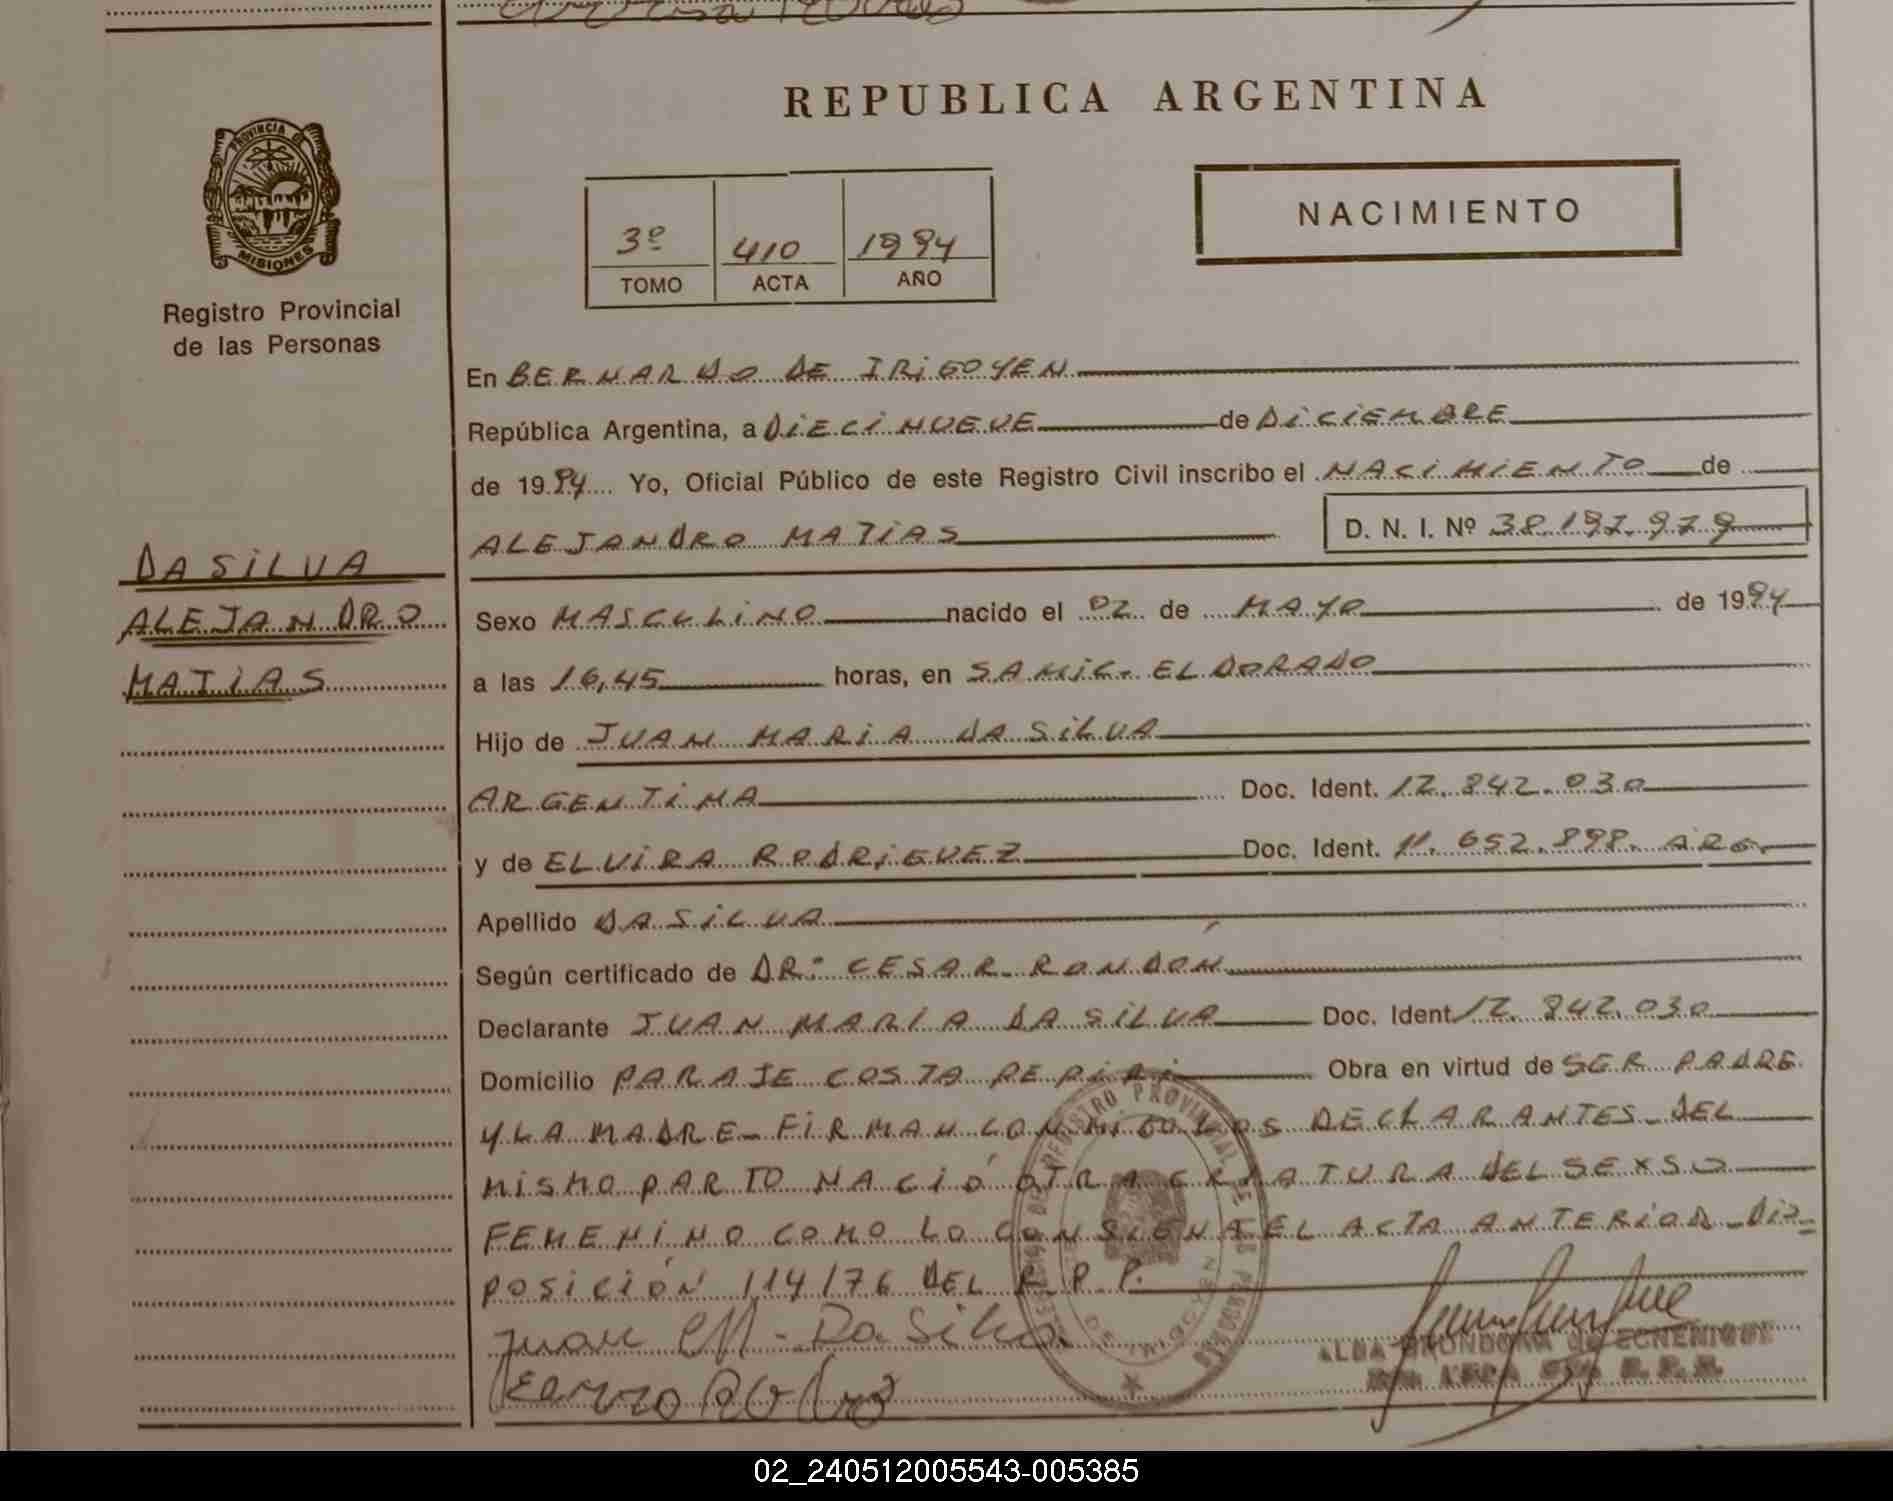 REPUBLICA ARGENTINA
PROVINCIA DE
MISIONES
Registro Provincial
de las Personas
3º 410 1994
TOMO ACTA AÑO
NACIMIENTO
En BERNARDO DE IRIGOYEN
República Argentina, a DIECINUEVE de DICIEMBRE
de 1994 Yo, Oficial Público de este Registro Civil inscribo el NACIMIENTO de
ALEJANDRO MATIAS D. N. I. Nº 38.197.979
DA SILVA
ALEJANDRO
MATIAS
Sexo MASCULINO nacido el 02 de MAYO de 1994
a las 16,45 horas, en SAMIC. ELDORADO
Hijo de JUAN MARIA DA SILVA
ARGENTINA Doc. Ident. 12.842.030
y de ELVIRA RODRIGUEZ Doc. Ident. 11.652.898. ARG.
Apellido DA SILVA
Según certificado de DR: CESAR RONDÓN
Declarante JUAN MARIA DA SILVA Doc. Ident. 12.842.030
Domicilio PARAJE COSTA PEPIRI Obra en virtud de SER PADRE
Y LA MADRE- FIRMAN CONMIGO LOS DECLARANTES- DEL
MISMO PARTO NACIÓ OTRA CRIATURA DEL SEXSO
FEMENINO COMO LO CONSIGNA EL ACTA ANTERIOR- DIS-
POSICIÓN 114/76 DEL R.P.P.
Juan M. Da Silva
02_240512005543-005385